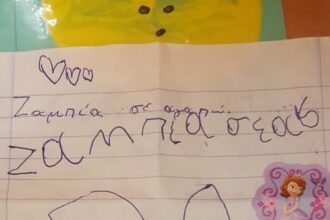 Ζαμπία σε αγαπώ.
ΖΑΜΠΙΑ ΣΕΑ